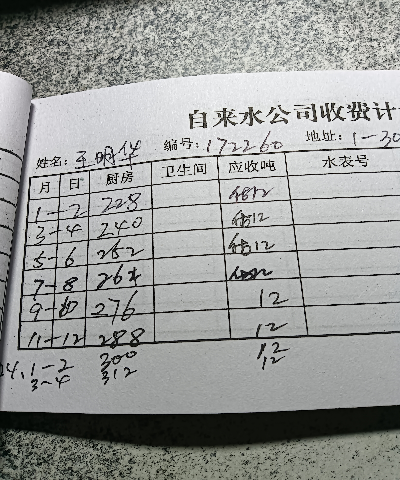 自来水公司收费计
姓名: 王明华 编号: 172260 地址: 1-30
月 日 厨房 卫生间 应收吨 水表号
1-2 228 12
3-4 240 12
5-6 252 12
7-8 264 12
9-10 276 12
11-12 288 12
24,1-2 300 12
3-4 312 12